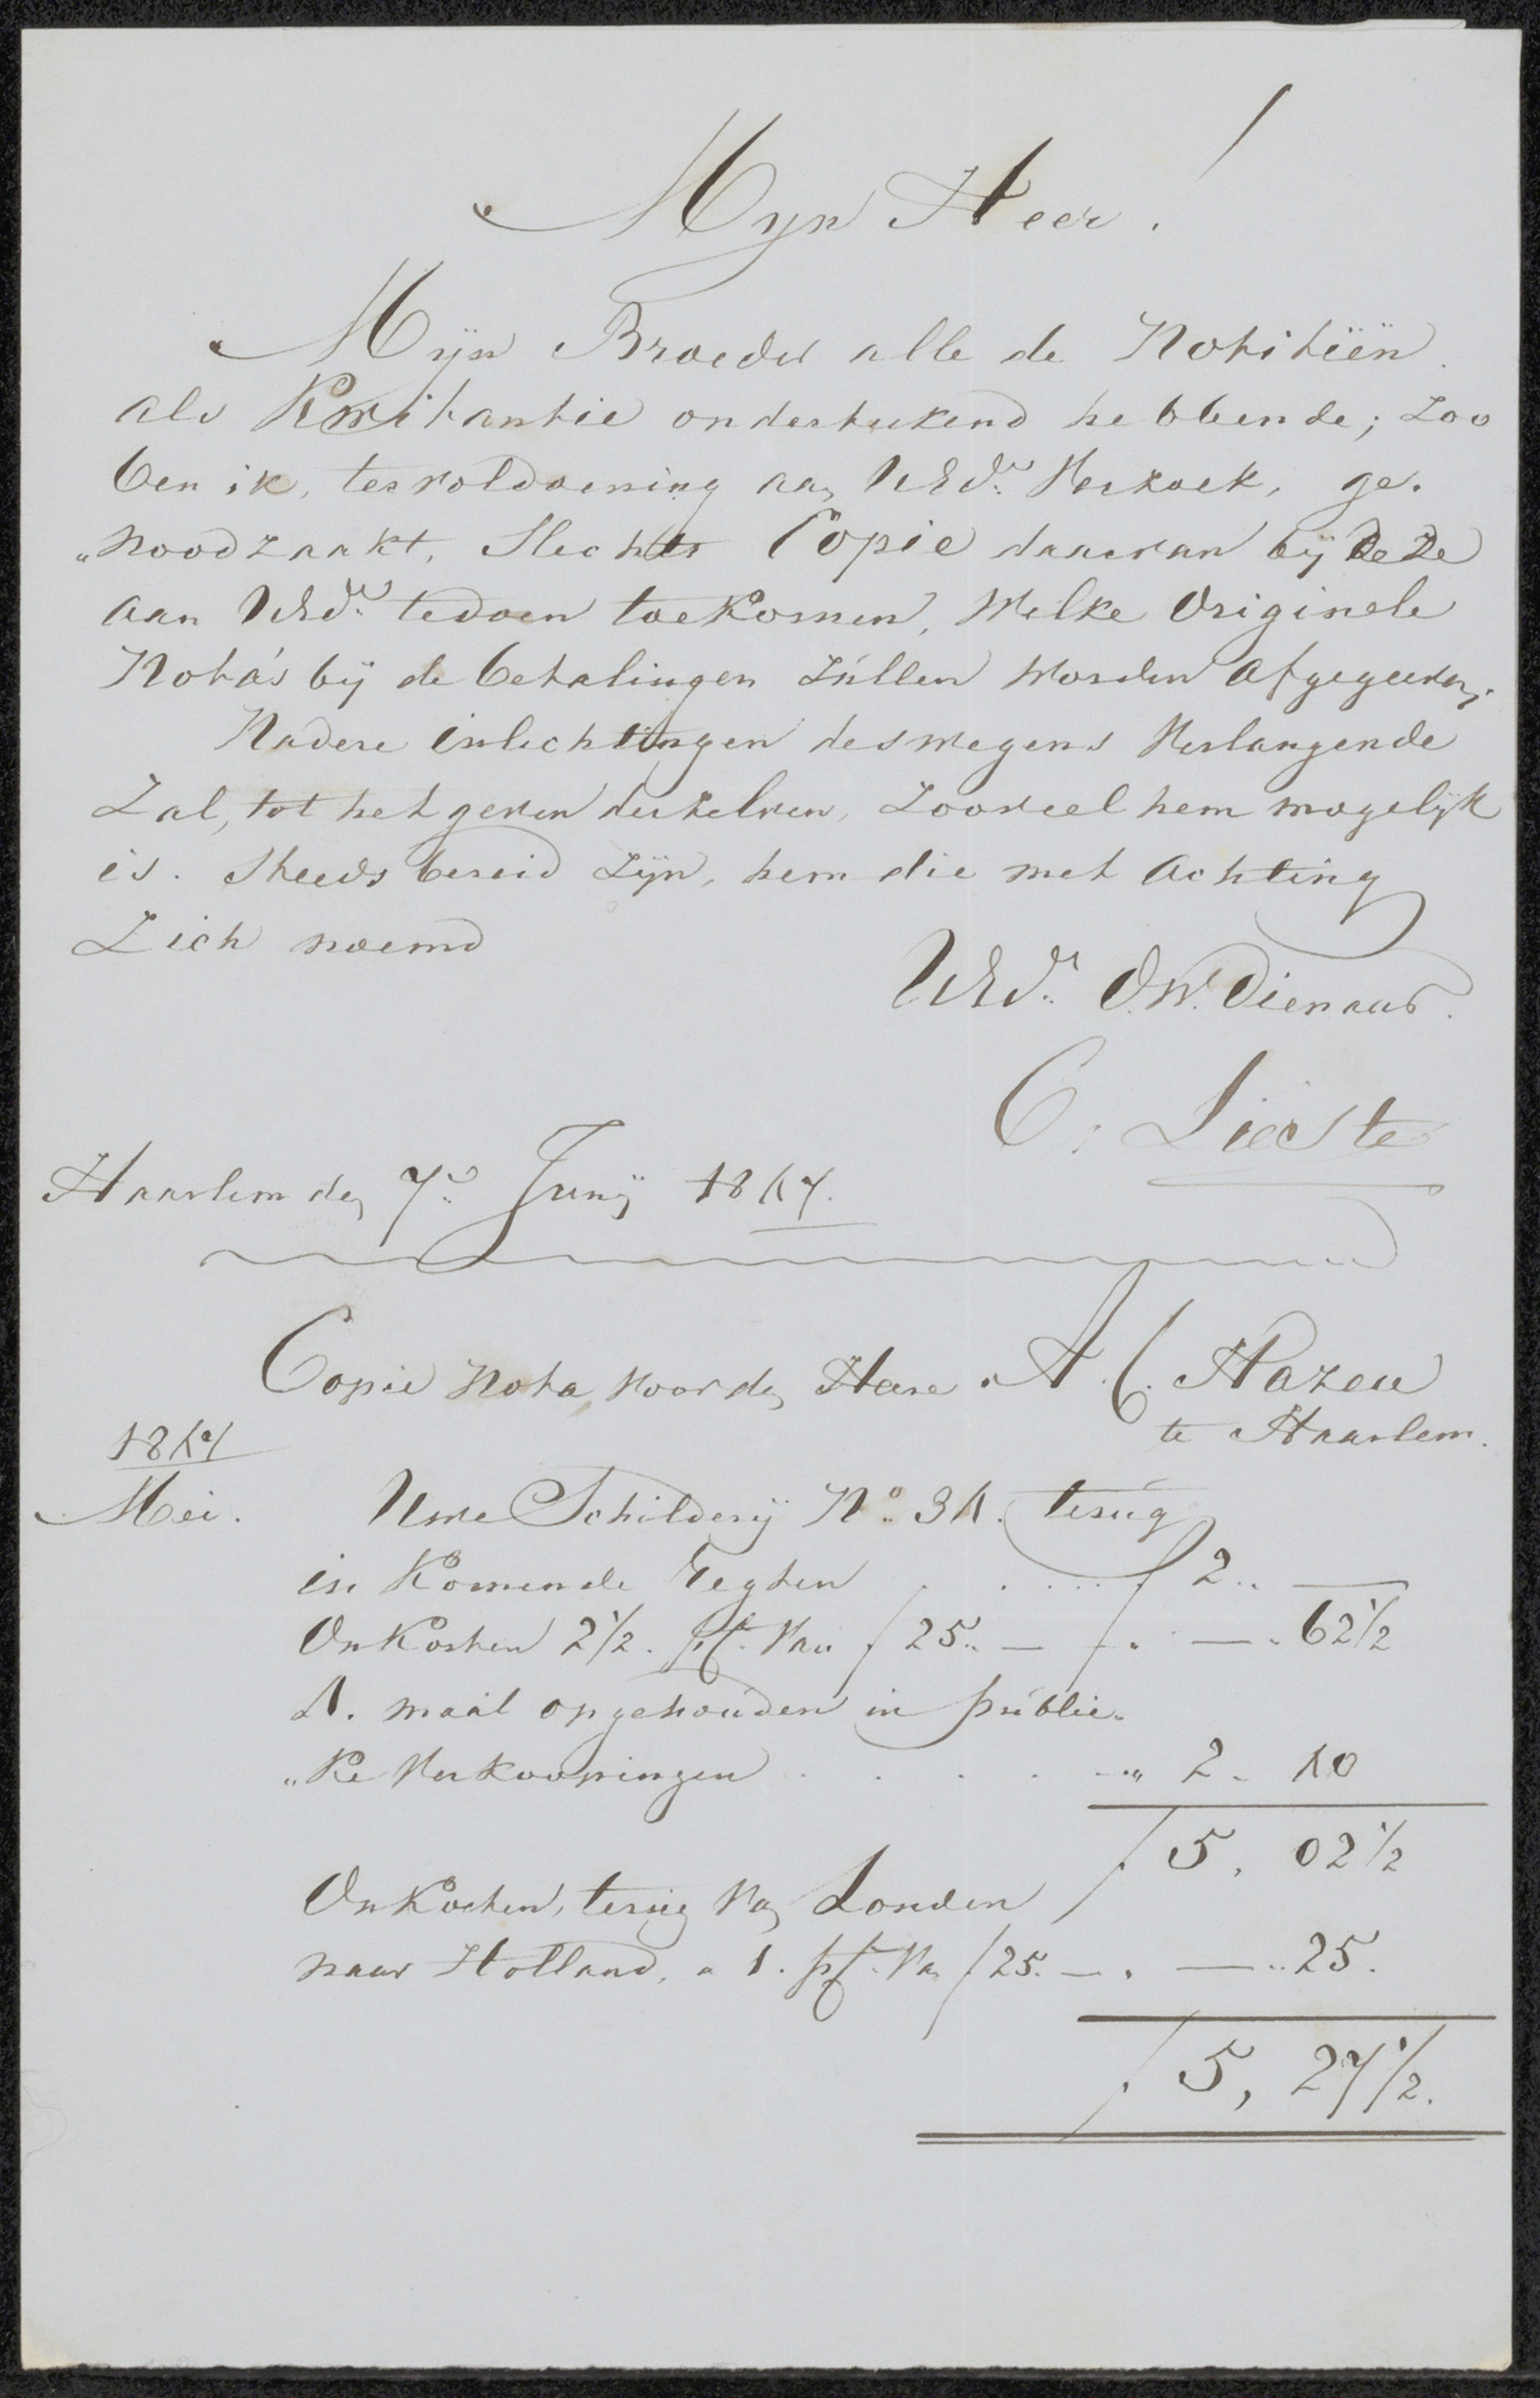 Myn Heer!
Mijn Broeder alle de Notitiëën
als Kwitantie onderteekend hebbende; Zoo
ben ik, tervoldoening aan UEdr. Verzoek, ge-
„noodzaakt, Slechts Copie daarvan bij deze
aan UEdr. tedoen toekomen, Welke Origineele
Nota's bij de betalingen Zúllen Worden afgegeeven,
Nadere inlichtingen deswegens Verlangende
Zal, tot het geven derzelven, Zooveel hem mogelijk
is. Steeds bereid Zijn, hem die met Achting
Zich noemd
UEdr. D.W. Dienaar.
C. Lieste
Haarlem den 7e. Junij 1847.
Copie Nota, Voor den Heere A. C. Hazeu
te Haarlem.
1847
Mei. Uwe Schilderij No. 34. terúg
in Komende Regten . . . . . f 2.. —
OnKosten 2 1/2. pCt. Van f 25.. — f. — .. 62 1/2
4. maal opgehoúden in públie-
„Ke Verkoopingen . . . . . „ 2 - 40
f 5. 02 1/2
OnKosten, terúg Van Londen
naar Holland, a 1. pCt. Van f 25. — . — .. 25.
f 5, 27 1/2.